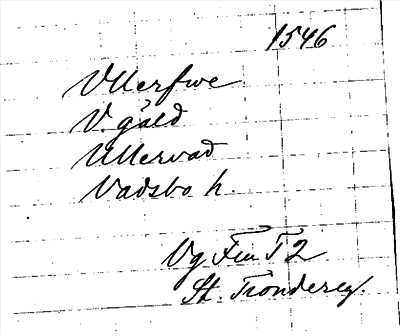 1546
Ullerfwe
V. gäld
Ullervad
Vadsbo h.
Vg Fru T 2
St. Tiondereg.